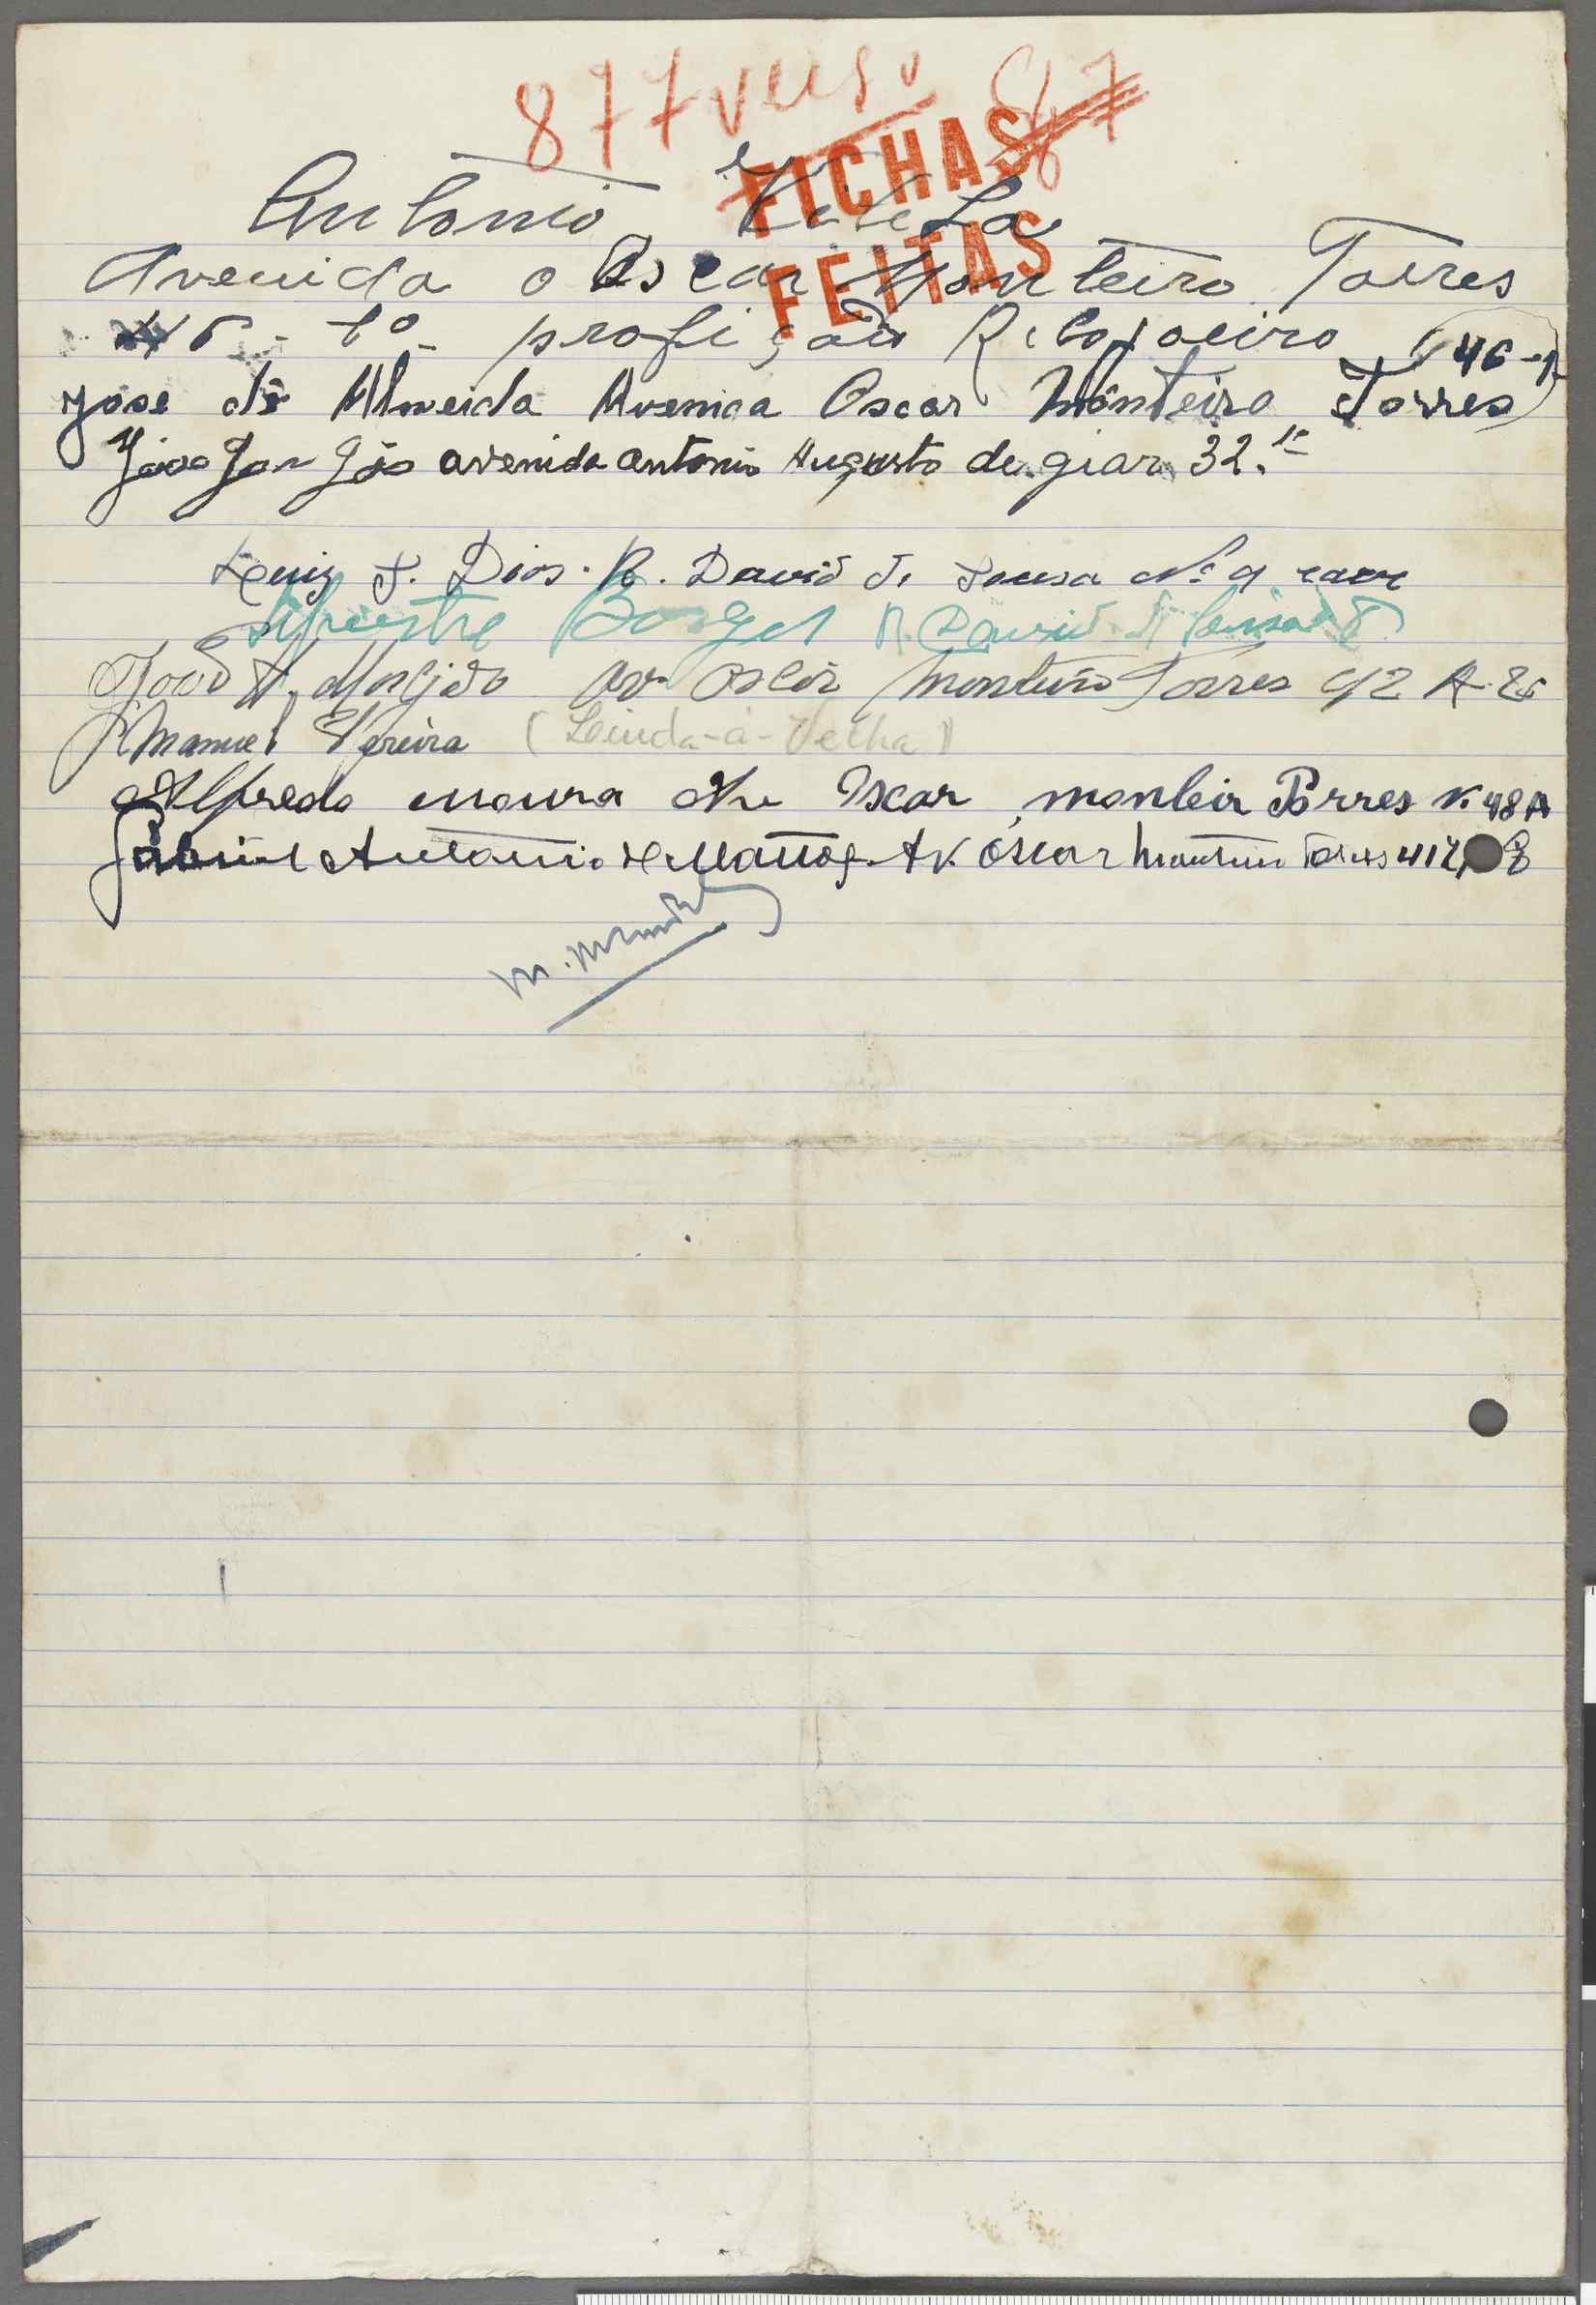 877 verso 867
FICHAS
FEITAS
Antonio Vilela
Avenida o Oscar Monteiro Torres
46 - 1º - profiçaõ Relojoeiro
(46-1
Jose de Almeida Avenida Oscar Monteiro Torres)
avenida antonio Augusto de giar 32.
Luiz F. Dias. R. David de Sousa Nº 9 cave
Silvestre Borges R. David de Sousa
Av Oscar Monteiro Torres 42 A
Manuel Pereira (Leinda-a-Velha)
Alfredo moura Av Oscar monteir Torres N. 48 A
Gabriel Antonio de Mattos Av. Óscar Monteiro Torres
M.